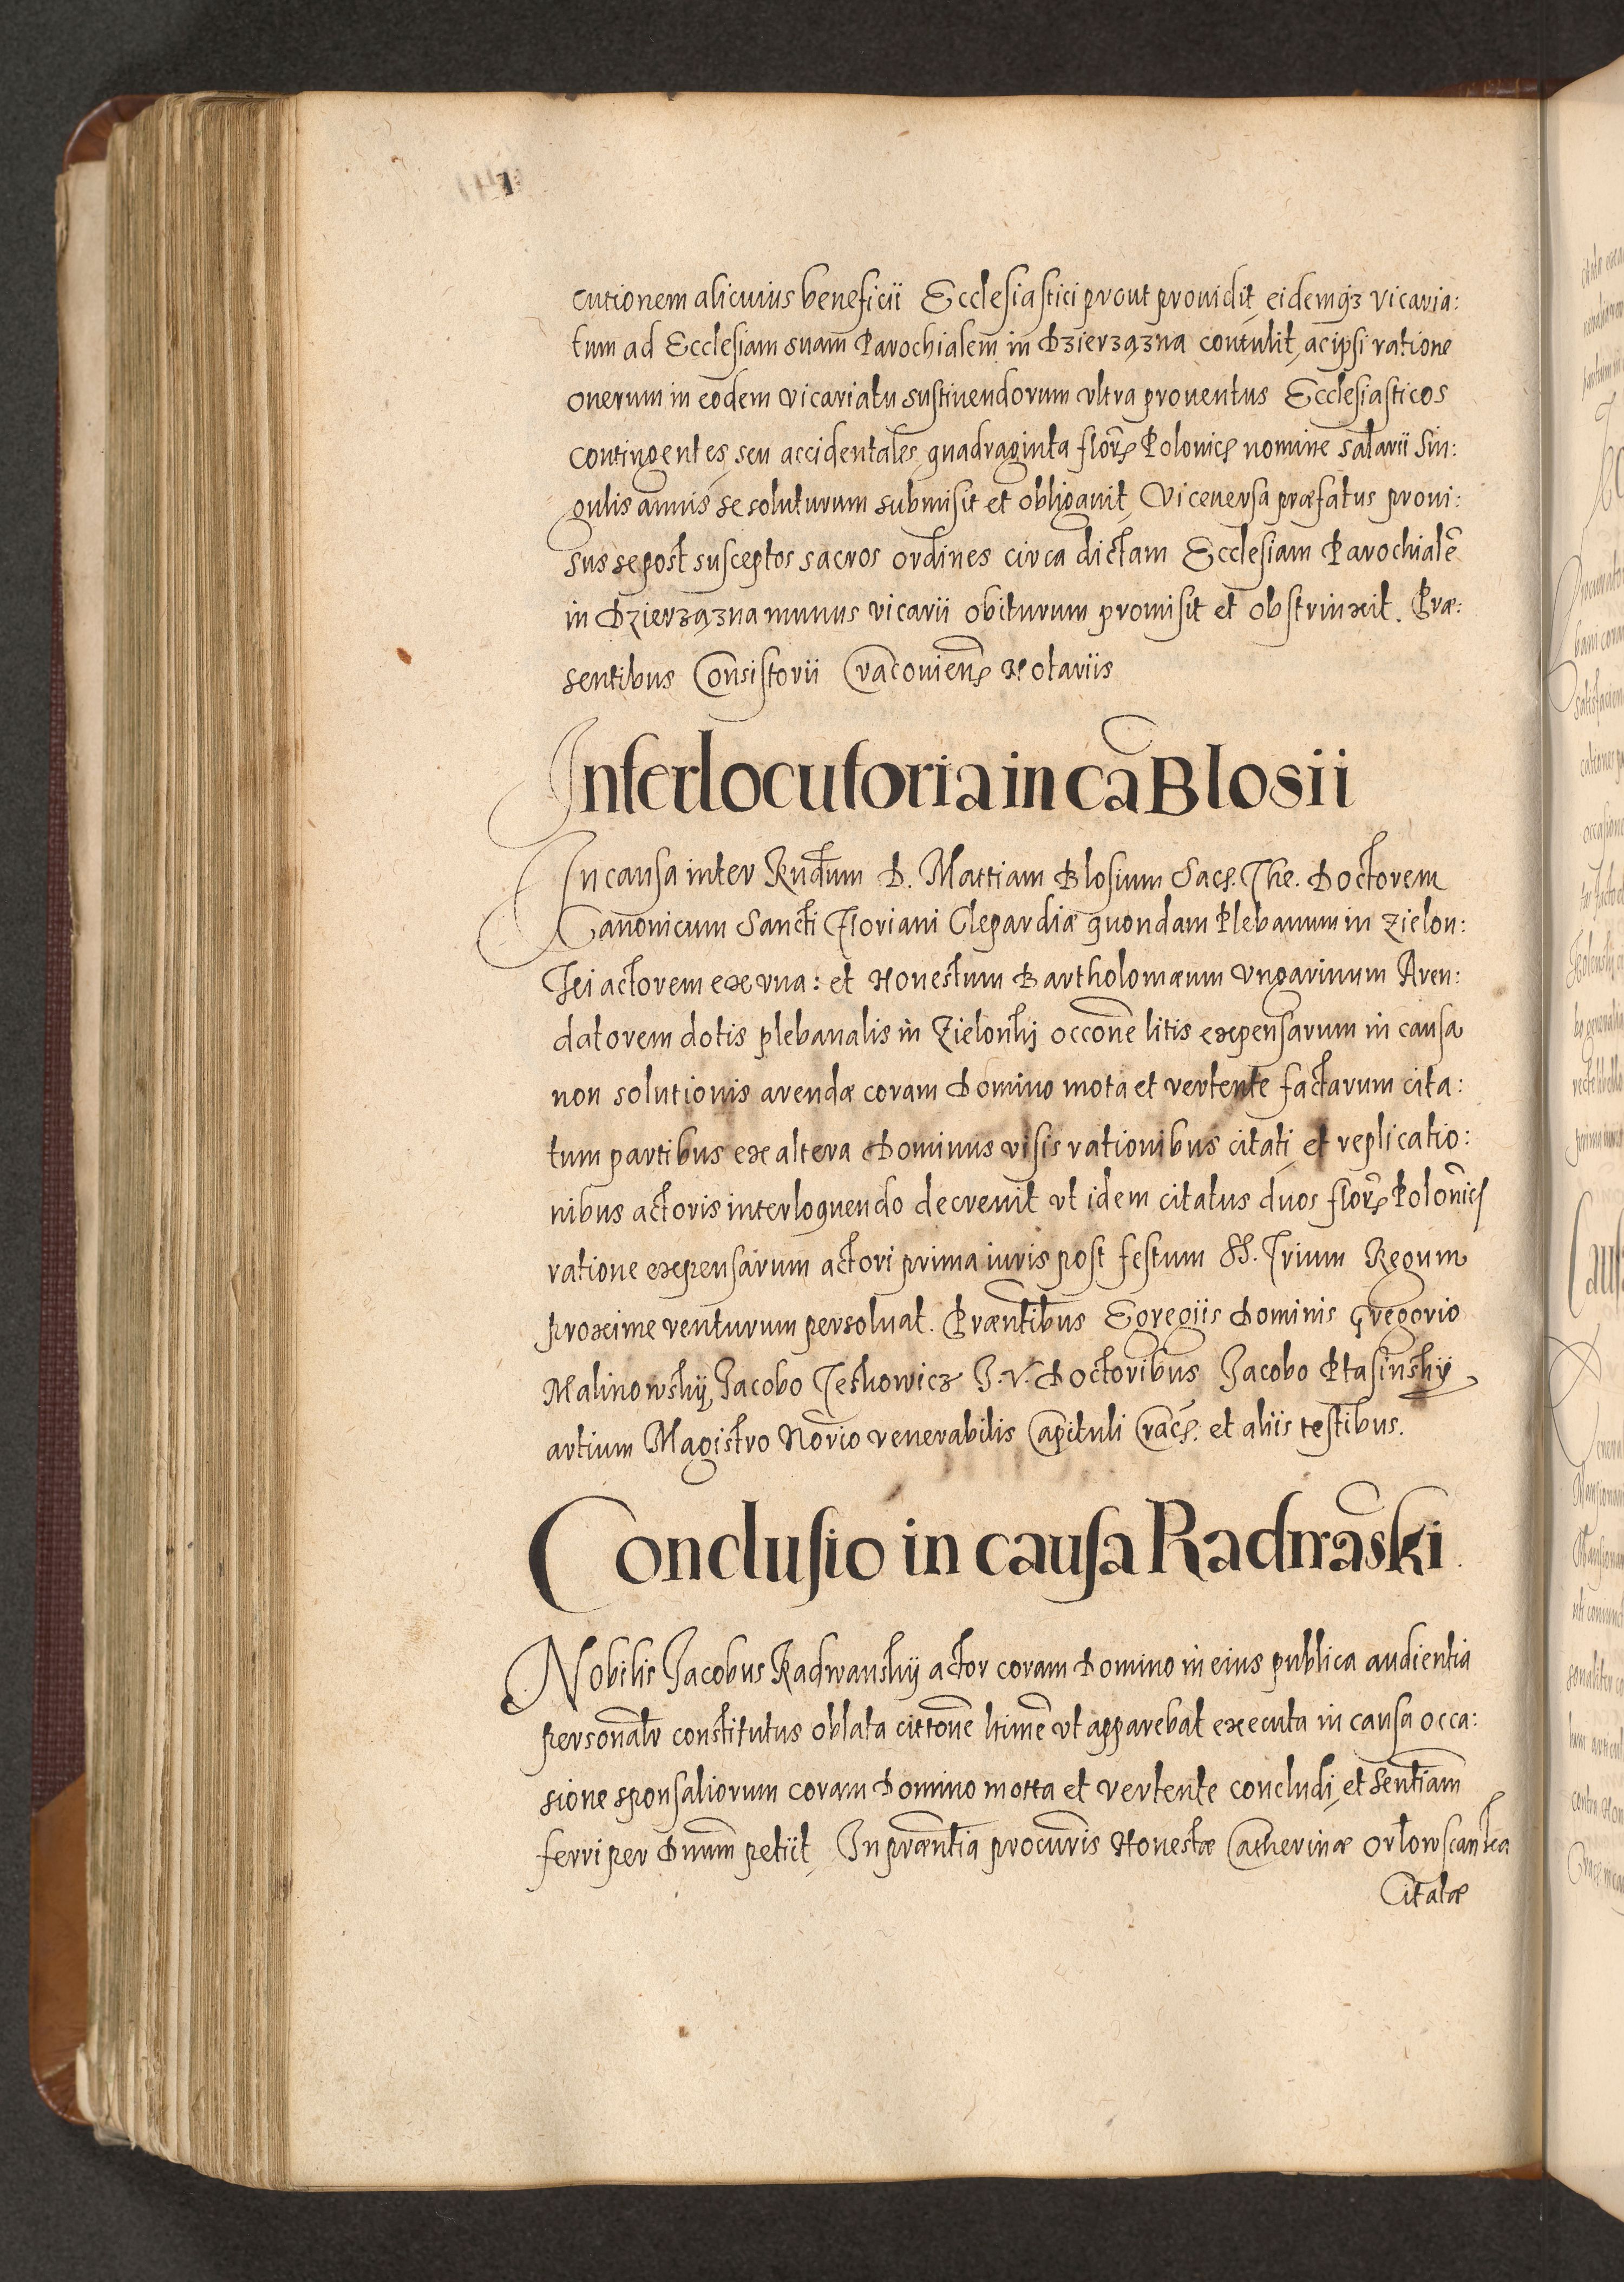 cutionem alicuius beneficii Ecclesiastici prout prouidit, eidemqꝫ vicaria:
tum ad Ecclesiam suam Parochialem in Dzierzązna contulit, ac ipsi ratione
onerum in eodem vicariatu sustinendorum vltra prouentus Ecclesiasticos
contingentes, seu accidentales, quadraginta florꝭ Polonicꝭ nomine salarii Sin:
gulis annis se soluturum submisit et obligauit, Viceuersa præfatus proui:
sus se post susceptos sacros ordines circa dictam Ecclesiam Parochialē
in Dzierzązna munus vicarii obiturum promisit et obstrinxit. Præ:
sentibus Consistorii Cracouienꝭ Notariis
Interlocutoria in cā Blosii
In causa inter Rndum D. Mattiam Blosium Sacꝭ. The. Doctorem
Canonicum Sancti Floriani Clepardiæ quondam Plebanum in Zielon:
ki actorem ex vna: et Honestum Bartholomæum Vngarinum Aren:
datorem dotis plebanalis in Zielonkj occōne litis expensarum in causa
non solutionis arendæ coram Domino mota et vertente factarum cita:
tum partibus ex altera Dominus visis rationibus citati, et replicatio:
nibus actoris interloquendo decreuit vt idem citatus duos florꝭ Polonicꝭ
ratione expensarum actori prima iuris post festum SS. Trium Regum
proxime venturum persoluat. Præntibus Egregiis Dominis Gregorio
Malinowskÿ, Jacobo Jeskowicz J. V. Doctoribus Jacobo Ptasinskÿ
artium Magistro Norio venerabilis Capituli Cracꝭ: et aliis testibus.
Conclusio in causa Radwāski
Nobilis Jacobus Radwanskÿ actor coram Domino in eius publica audientia
personalr constitutus oblata cittone ltime vt apparebat executa in causa occa:
sione sponsaliorum coram Domino motta et vertente concludi, et Sentiam
ferri per Dnum petiit, In præntia procuris Honestæ Catherinæ Orlowscanka
Citatæ